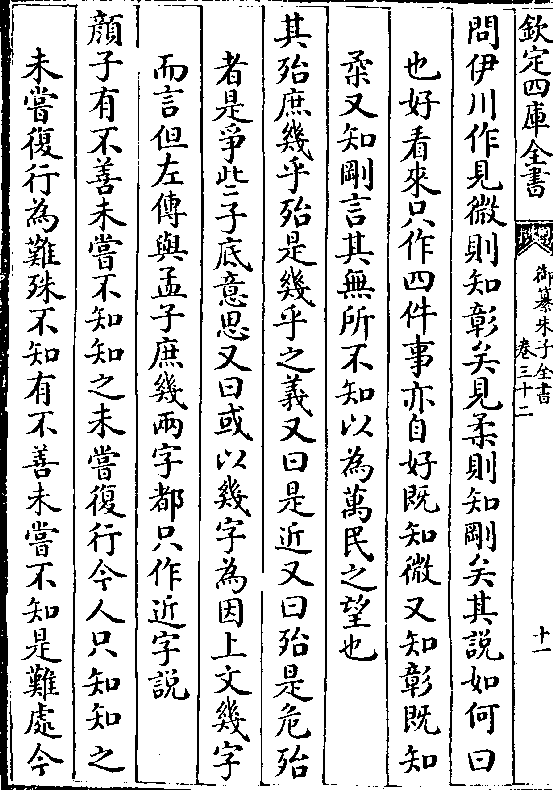 欽定四庫全書
御纂朱子全書
卷三十二
十一
問伊川作見微則知彰矣見柔則知剛矣其説如何曰
也好看來只作四件事亦自好既知微又知彰既知
柔又知剛言其無所不知以為萬民之望也
其殆庶幾乎殆是幾乎之義又曰是近又曰殆是危殆
者是爭些子底意思又曰或以幾字為因上文幾字
而言但左傳與孟子庶幾兩字都只作近字説
顔子有不善未嘗不知知之未嘗復行今人只知知之
未嘗復行為難殊不知有不善未嘗不知是難處今